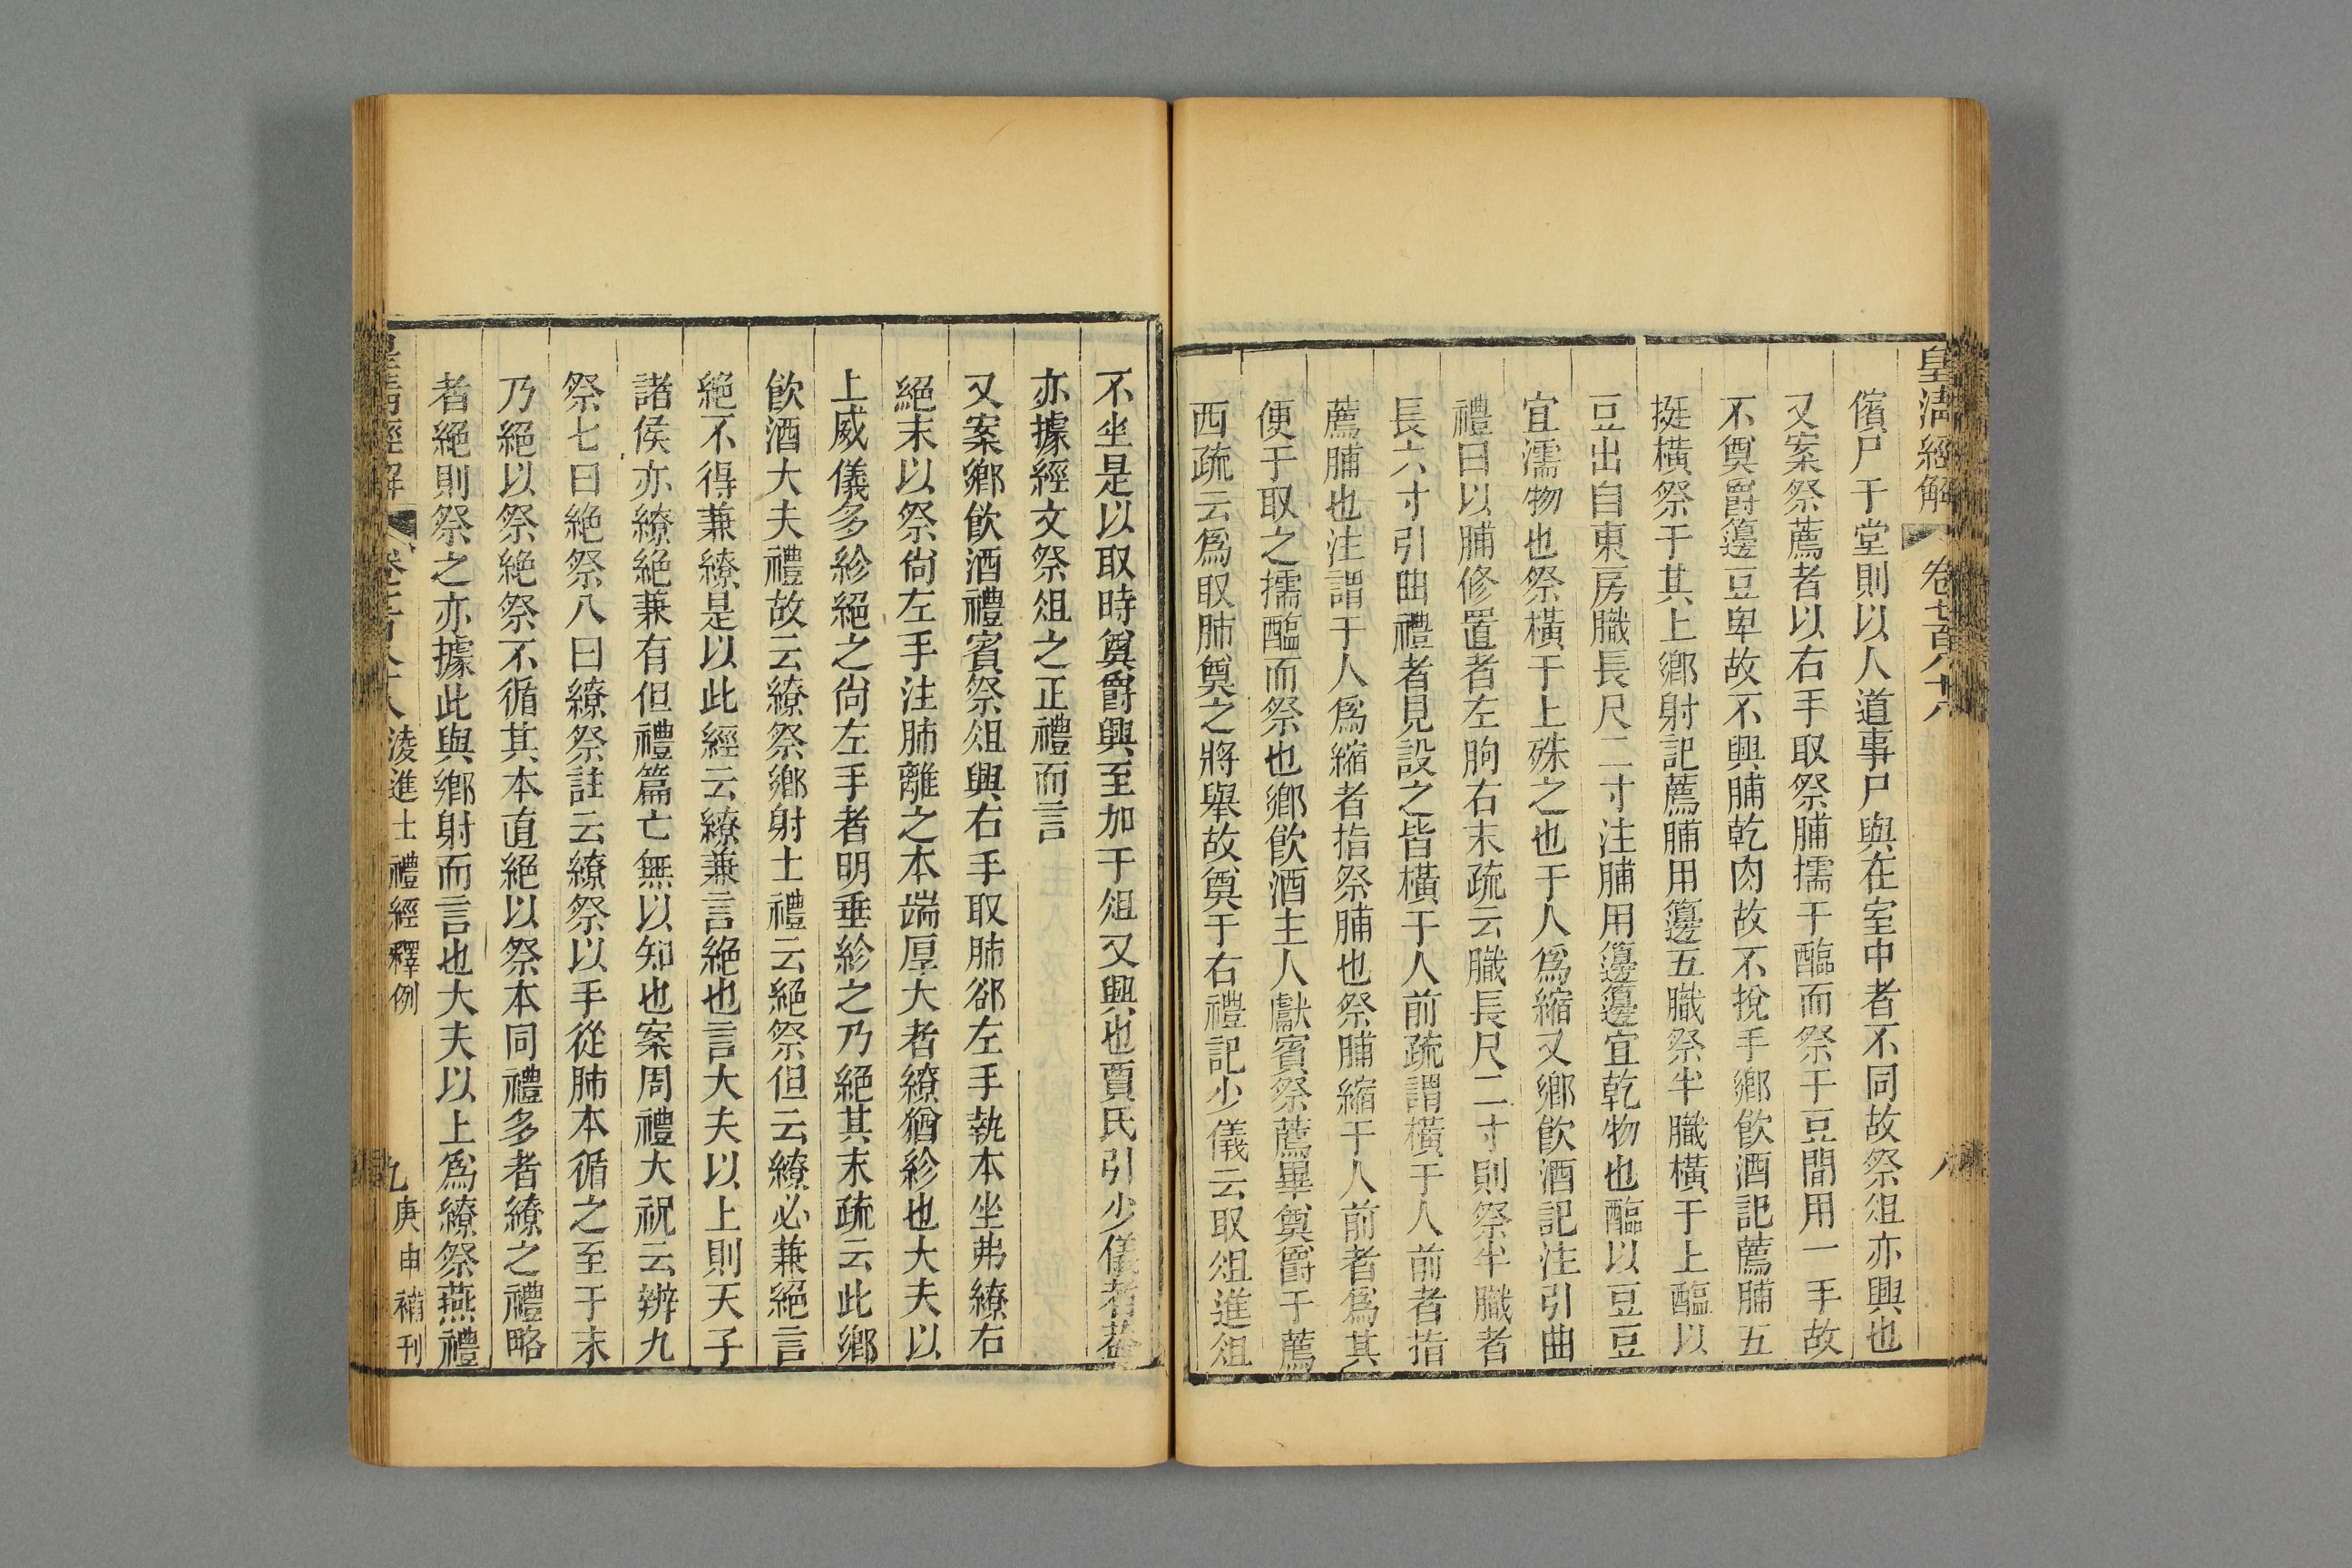 皇清經解 卷七百八十八 八
儐尸于堂則以人道事尸與在室中者不同故祭俎亦興也
又案祭薦者以右手取祭脯擩于醢而祭于豆間用一手故
不奠爵籩豆卑故不興脯乾肉故不挩手鄉飲酒記薦脯五
挺橫祭于其上鄉射記薦脯用籩五膱祭半膱橫于上醢以
豆出自東房膱長尺二寸注脯用籩籩宜乾物也醢以豆豆
宜濡物也祭橫于上殊之也于人爲縮又鄉飲酒記注引曲
禮曰以脯修置者左朐右末疏云膱長尺二寸則祭半膱者
長六寸引曲禮者見設之皆橫于人前疏謂橫于人前者指
薦脯也注謂于人爲縮者指祭脯也祭脯縮于人前者爲其
便于取之擩醢而祭也鄉飲酒主人獻賓祭薦畢奠爵于薦
西疏云爲取肺奠之將舉故奠于右禮記少儀云取俎進俎
不坐是以取時奠爵興至加于俎又興也賈氏引少儀者蓋
亦據經文祭俎之正禮而言
又案鄉飲酒禮賓祭俎興右手取肺卻左手執本坐弗繚右
絕末以祭尙左手注肺離之本端厚大者繚猶紾也大夫以
上威儀多紾絕之尙左手者明垂紾之乃絕其末疏云此鄉
飲酒大夫禮故云繚祭鄉射士禮云絕祭但云繚必兼絕言
絕不得兼繚是以此經云繚兼言絕也言大夫以上則天子
諸侯亦繚絕兼有但禮篇亡無以知也案周禮大祝云辨九
祭七曰絕祭八曰繚祭註云繚祭以手從肺本循之至于末
乃絕以祭絕祭不循其本直絕以祭本同禮多者繚之禮略
者絕則祭之亦據此與鄉射而言也大夫以上爲繚祭燕禮
皇清經解 卷七百八十八 淩進士禮經釋例 九 庚申補刊